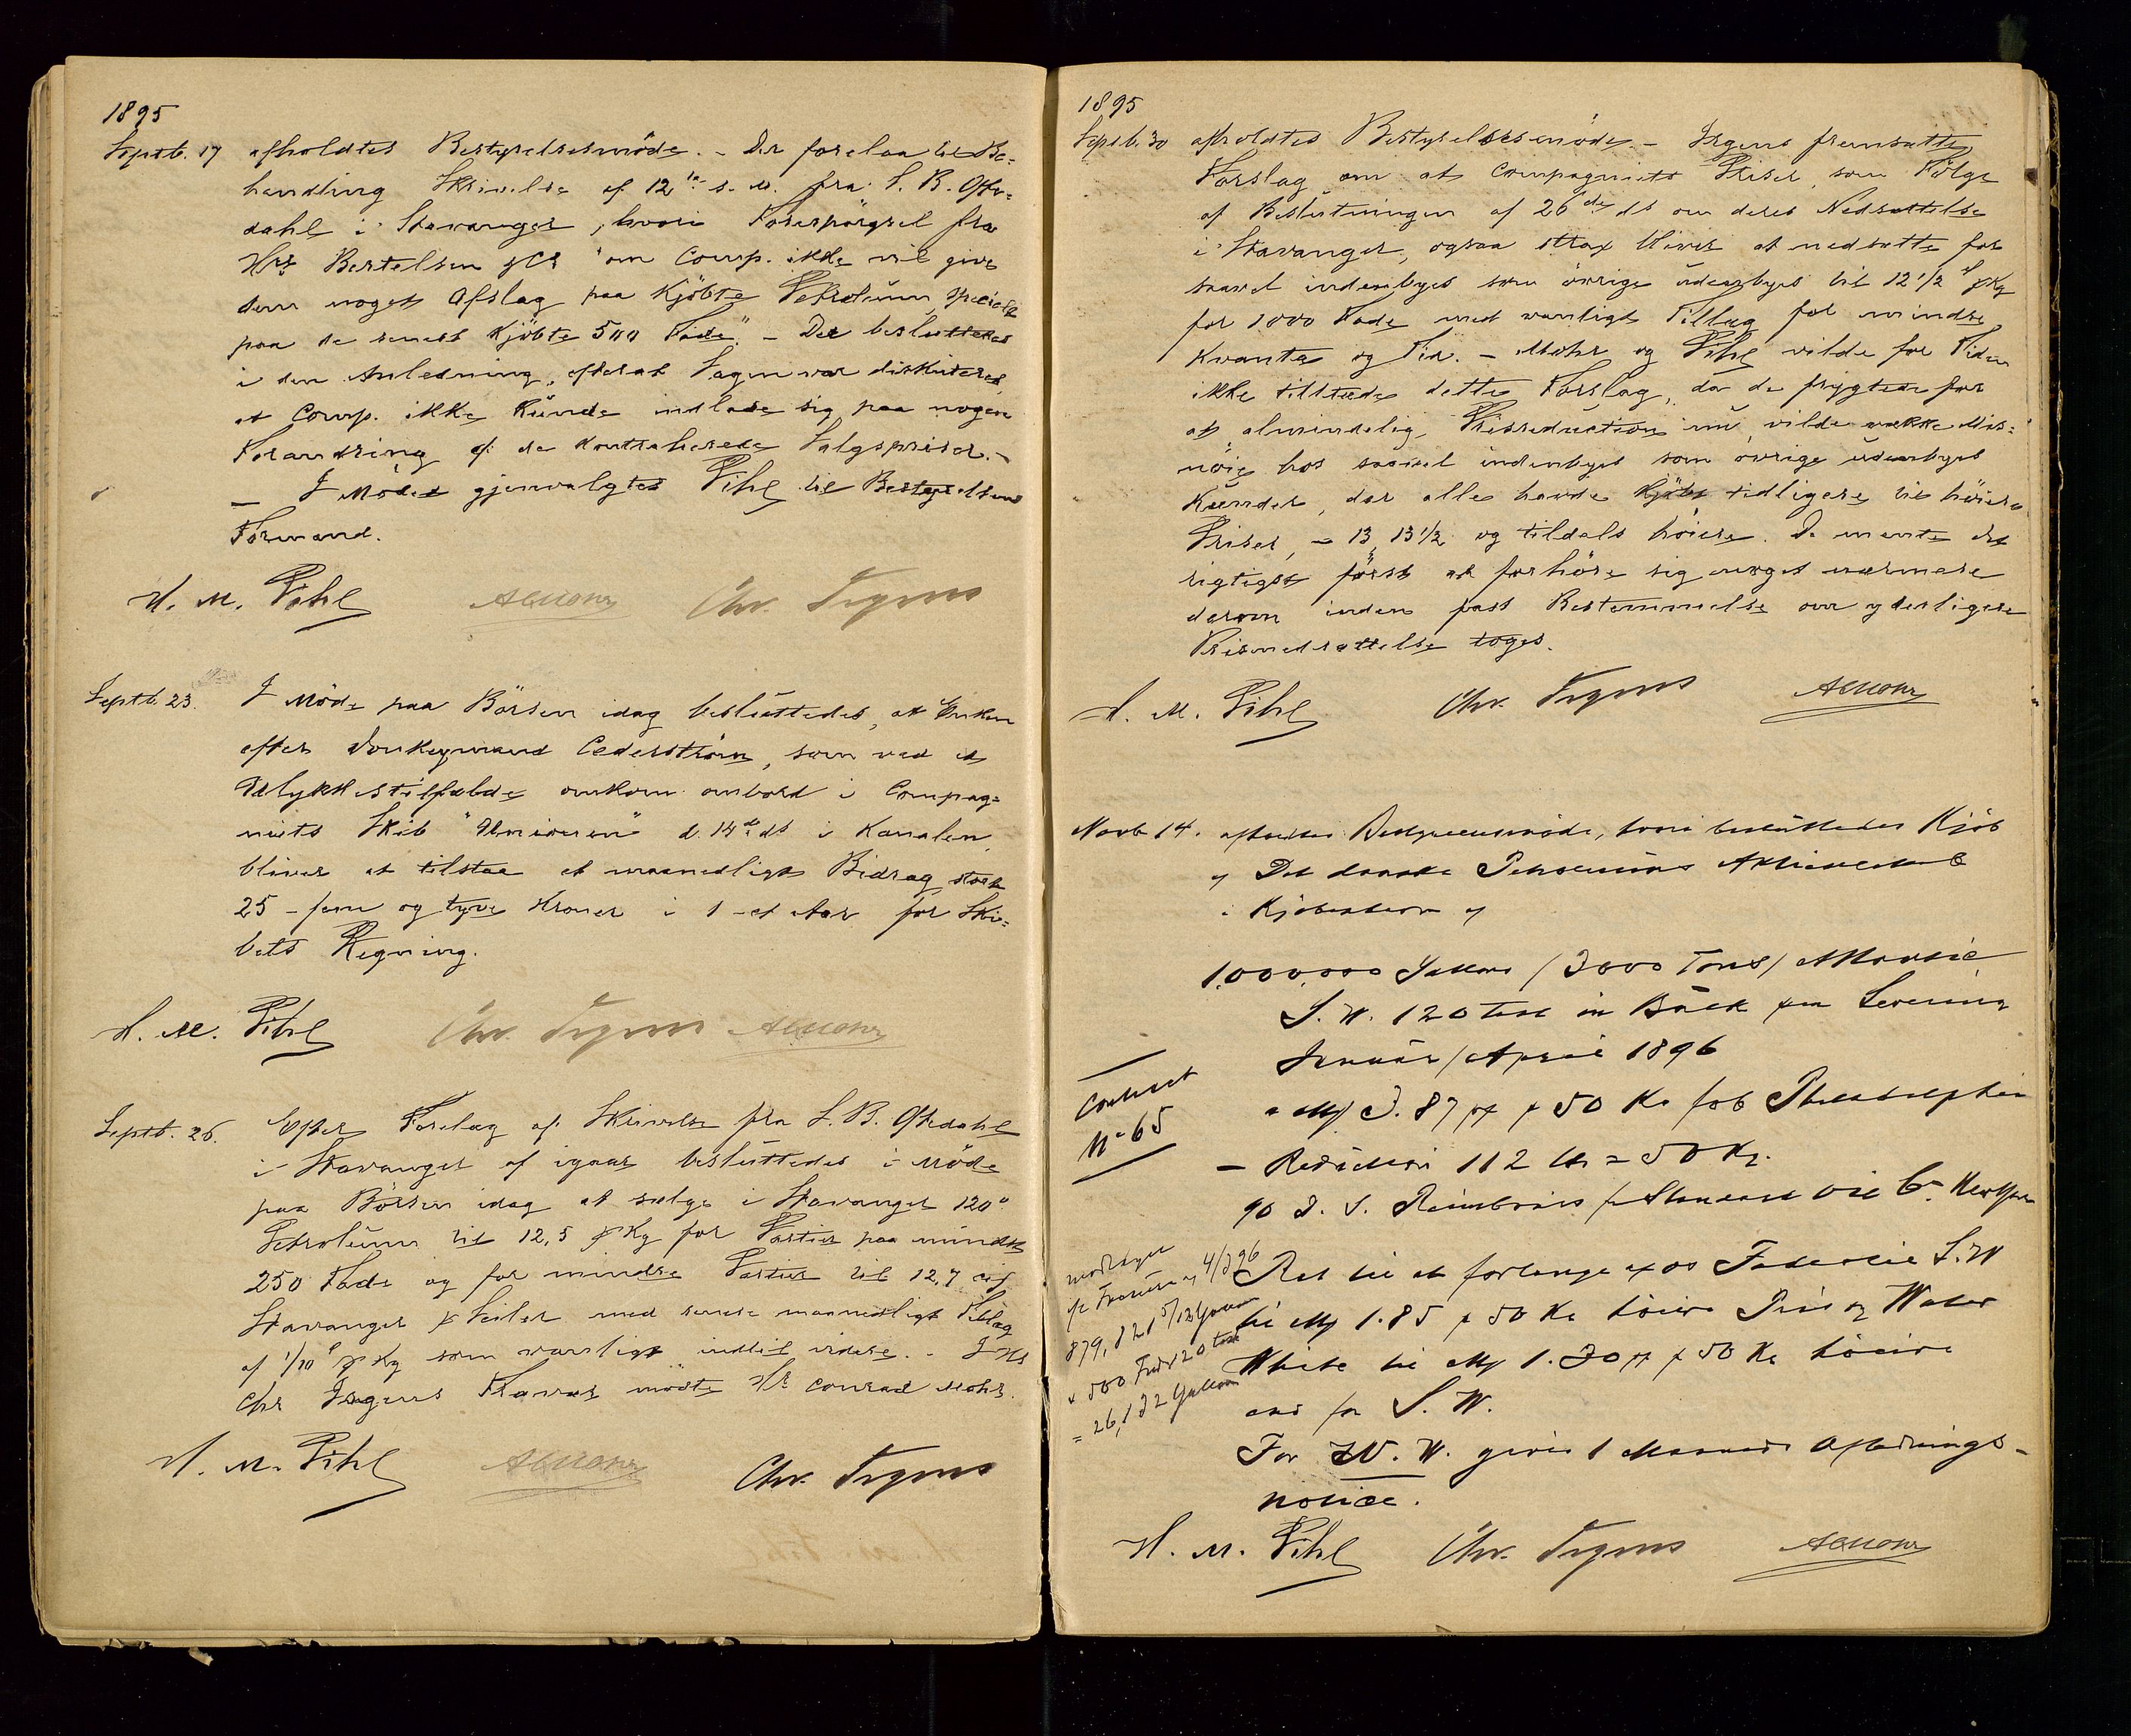 1895
Septb. 17 afholdtes Bestyrelsesmöde. - Der forelaa til Be-
handling Skrivelse af 12te s. m. fra S. B. Ofte-
dahl i Stavanger, hvori Forespörgsel fra
Hrr Bertelsen & Co "om Comp. ikke vil give
dem noget Afslag paa kjöbte Petroleum, specielt
paa de senest kjöbte 500 Fade". - Det besluttedes
i den Anledning, efterat Sagen var diskuteret,
at Comp. ikke kunde indlade sig paa nogen
Forandring af de kontraherede Salgspriser. -
- I Mödet gjenvalgtes Pihl til Bestyrelsens
Formand.
H. M. Pihl AC Mohr Chr. Irgens
Septb. 23. I Möde paa Börsen idag besluttedes, at Enken
efter Donkeymand Cederström, som ved et
Ulykkestilfælde omkom ombord i Compag-
niets Skib "Unionen" d. 14de ds i Kanalen,
bliver at tilstaa et maanedligt Bidrag stort
25 - fem og tyve Kroner i 1 - et Aar for Ski-
bets Regning.
H. M. Pihl Chr. Irgens AC Mohr
Septb. 26. Efter Forelag af Skrivelse fra S. B. Oftedahl
i Stavanger af igaar besluttedes i Möde
paa Börsen idag at sælge i Stavanger 120°
Petroleum til 12,5 pr Kg for Partier paa mindst
250 Fade og for mindre Partier til 12,7 cif
Stavanger pr Seiler med senere maanedligt Tillæg
af 1/10 ø pr Kg som vanligt indtil videre. - I Hr
Chr Irgens Fravær mödte Hr Conrad Mohr.
H. M. Pihl AC Mohr Chr. Irgens
1895
Septb. 30 afholdtes Bestyrelsesmöde. - Irgens fremsatte
Forslag om at Compagniets Priser, som Fölge
af Beslutningen af 26de ds om deres Nedsættelse
i Stavanger, ogsaa strax bliver at nedsætte for
saavel indenbyes som övrige udenbyes til 12 1/2 ø pr Kg
for 1000 Fade med vanligt Tillæg for mindre
Kvanta og Tid. - Mohr og Pihl vilde for Tiden
ikke tiltræde dette Forslag, da de frygtede for
at almindelig Prisreduction nu vilde vække Mis-
nöie hos saavel indenbyes som övrige udenbyes
Kunder, der alle havde kjöbt tidligere til höiere
Priser, - 13, 13 1/2 og tildels höiere. De mente det
rigtigst först at forhöre sig noget nærmere
derom inden fast Bestemmelse om yderligere
Prisnedsættelse toges.
H. M. Pihl Chr. Irgens AC Mohr
Novb 14. afholdtes Bestyrelsesmöde, hvori besluttedes Kjöb
af Det danske Petroleums Aktieselskab
i Kjöbenhavn af
1,000,000 Gallons / 3000 Tons /
S. W. 120 Test in Bulk Levering
Januar / April 1896
a M 3.87 pf pr 50 Ko fob Philadelphia
- Reduction 112 lbs = 50 Kg.
90 d. S. Reimbours
Contract
No 65
Ret til at forlange S. W
til M 1.85 pr 50 Ko höiere Pris og Water
White til M 1.30 pf pr 50 Ko höiere
end for S. W.
For W. W. gives 1 Maaneds Afladnings-
notice.
modtaget
4/3 96
879,121 5/12 Gallons
+ 500 Fade 120 test
= 26,132 Gallons
H. M. Pihl Chr. Irgens AC Mohr